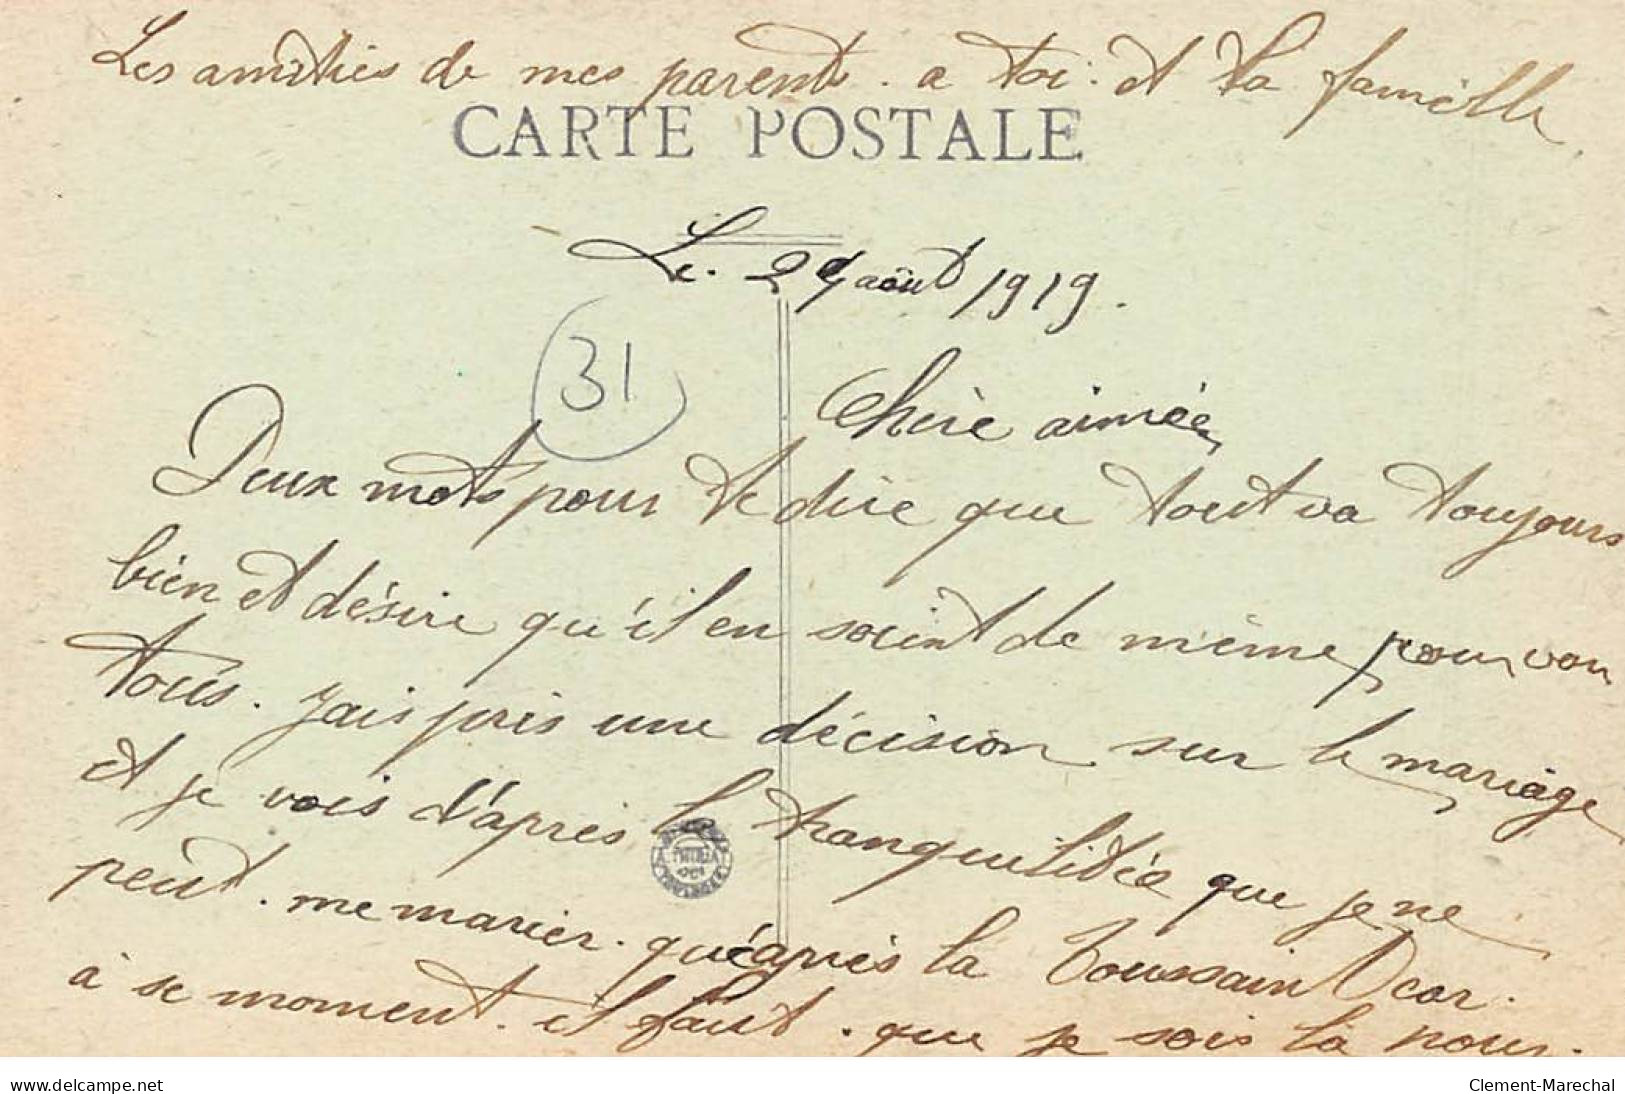 Les amitiés de mes parents. a toi. et ta famille
CARTE POSTALE
Le. 29 août 1919.
31
Chère aimée
Deux mots pour te dire que tout va toujours
bien et désire qu'il en soient de même pour vou
tous. jais pris une décision sur le mariage
et je vois d'après la tranquilitée que je ne
peut. me marier. qu'après la Toussaint car.
à se moment. il faut. que je sois la pour.
www.delcampe.net
Clement-Marechal